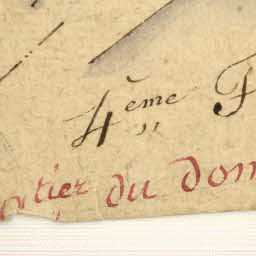 4ème F
rtier du dom